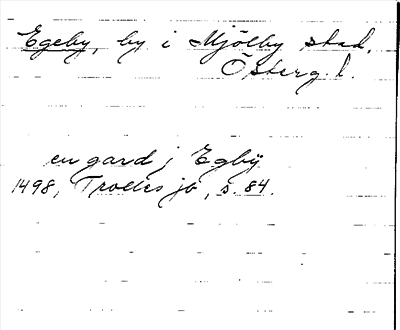 Egeby, by i Mjölby stad,
Österg. l.
en gard j Egby
1498, Trolles jb, s. 84.